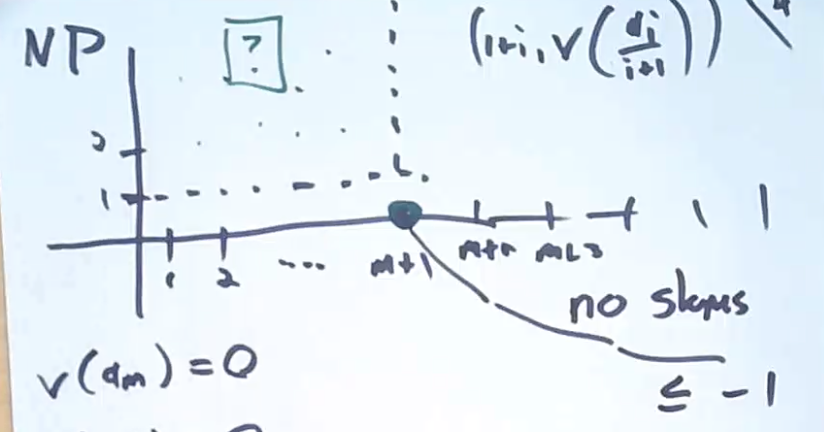 NP
?
(1+i, v(di/i+1))
2
1
1 2 ... m+1
no slopes
≤ -1
v(dm) = 0